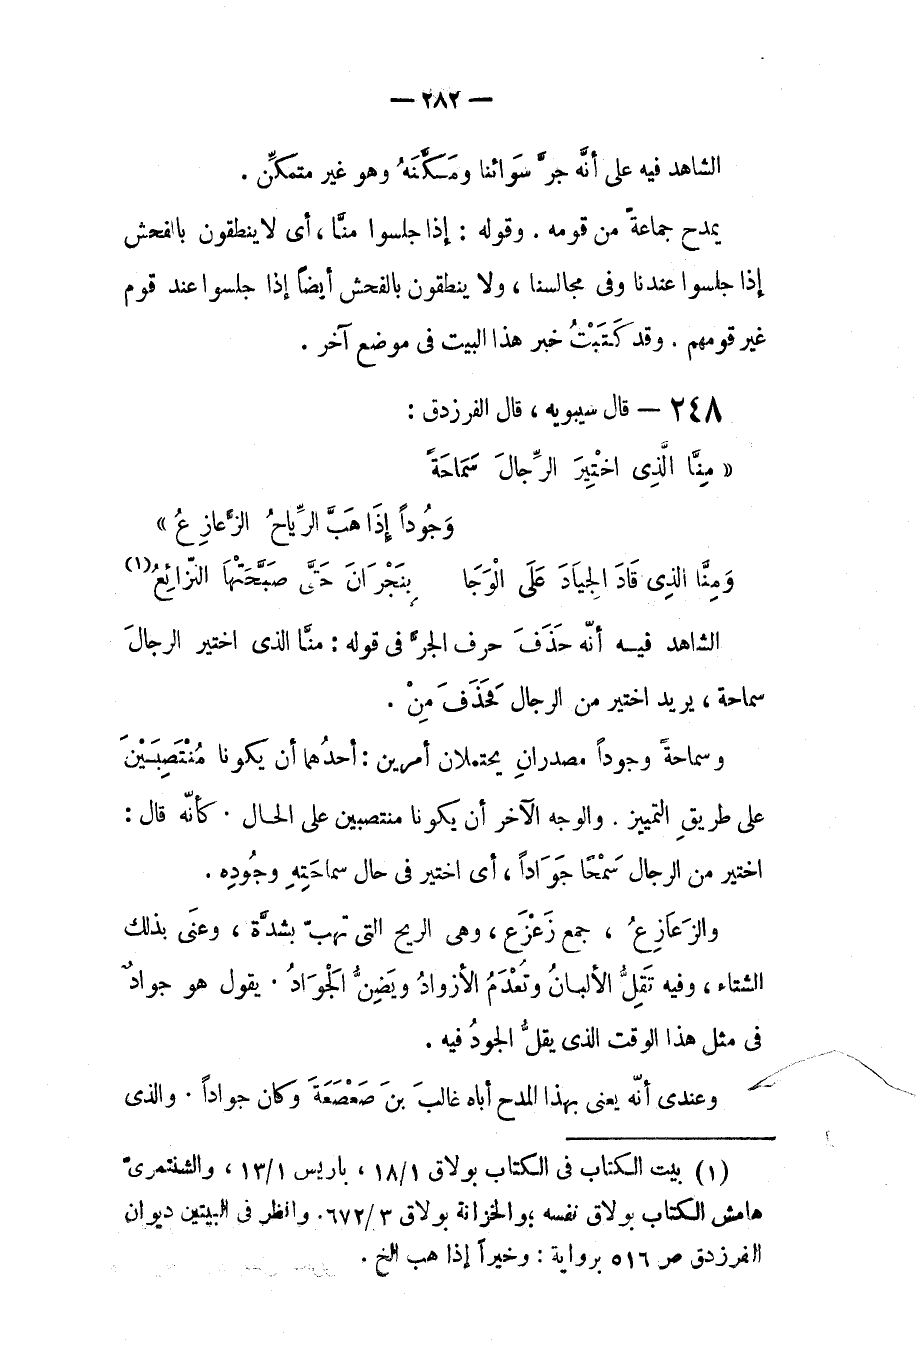 — ٢٨٢ —
الشاهد فيه على أنَّه جرَّ سَوَائنا ومَكَّنَهُ وهو غير متمكِّن .
يمدح جماعةً من قومه . وقوله : إذا جلسوا منَّا ، أى لا ينطقون بالفحش
إذا جلسوا عندنا وفى مجالسنا ، ولا ينطقون بالفحش أيضاً إذا جلسوا عند قوم
غير قومهم . وقد كَتَبْتُ خبر هذا البيت فى موضع آخر .
٢٤٨ — قال سيبويه ، قال الفرزدق :
« مِنَّا الَّذِى اخْتِيرَ الرِّجالَ سَمَاحَةً
وَجُوداً إِذَا هَبَّ الرِّياحُ الزَّعازِعُ »
وَمِنَّا الذِى قَادَ الجِيَادَ عَلَى الْوَجَا بِنَجْرَانَ حَتَّى صَبَّحَتْهَا النَّزائِعُ (١)
الشاهد فيه أنَّه حَذَفَ حرف الجرِّ فى قوله : منَّا الذى اختير الرجالَ
سماحة ، يريد اختير من الرجال فَحَذَفَ مِنْ .
وسماحةً وجوداً مصدرانِ يحتملان أمرين : أحدُهما أن يكونا مُنْتَصِبَيْنَ
على طريقِ التمييز . والوجه الآخر أن يكونا منتصبين على الحال . كأنَّه قال :
اختير من الرجال سَمْحًا جَوَاداً ، أى اختير فى حال سماحَتِهِ وجُودِه .
والزَعَازِعُ ، جمع زَعْزَع ، وهى الريح التى تهبّ بشدَّة ، وعنَى بذلك
الشتاء ، وفيه تَقِلُّ الألبانُ وتُعْدَمُ الأزوادُ ويَضِنُّ الجَوَادُ . يقول هو جوادٌ
فى مثل هذا الوقت الذى يقلُّ الجودُ فيه .
وعندى أنَّه يعنى بهذا المدح أباه غالبَ بنَ صَعْصَعَةَ وكان جواداً . والذى
(١) بيت الكتاب فى الكتاب بولاق ١/‏١٨ ، باريس ١/‏١٣ ، والشنتمرىّ
هامش الكتاب بولاق نفسه ؛ والخزانة بولاق ٣/‏٦٧٢. وانظر فى البيتين ديوان
الفرزدق ص ٥١٦ برواية : وخيراً إذا هب الخ .